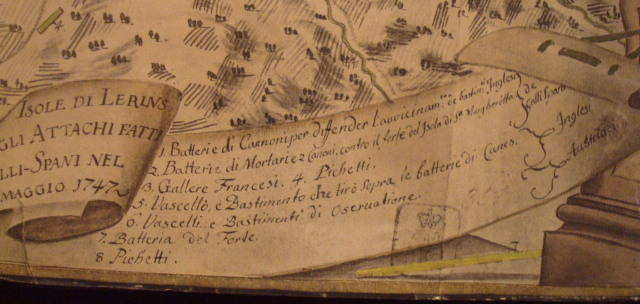 ISOLE DI LERINS
GLI ATTACHI FATTI
LLI-SPANI NEL
MAGGIO 1747
1. Batterie di Cannoni per diffender l'auvicinam.to de bastim.ti Inglesi
2. Batterie di Mortari e 2 Canoni, contro il forte del Isola di S.ta Margheretta
3. Gallere Francesi. 4. Pichetti.
5. Vascello, è Bastimento che tirò sopra le batterie di Canes.
6. Vascelli, e Bastimenti di Oseruatione.
7. Batteria del Forte.
8 Pichetti.
de
Galli Spani
Inglesi
7